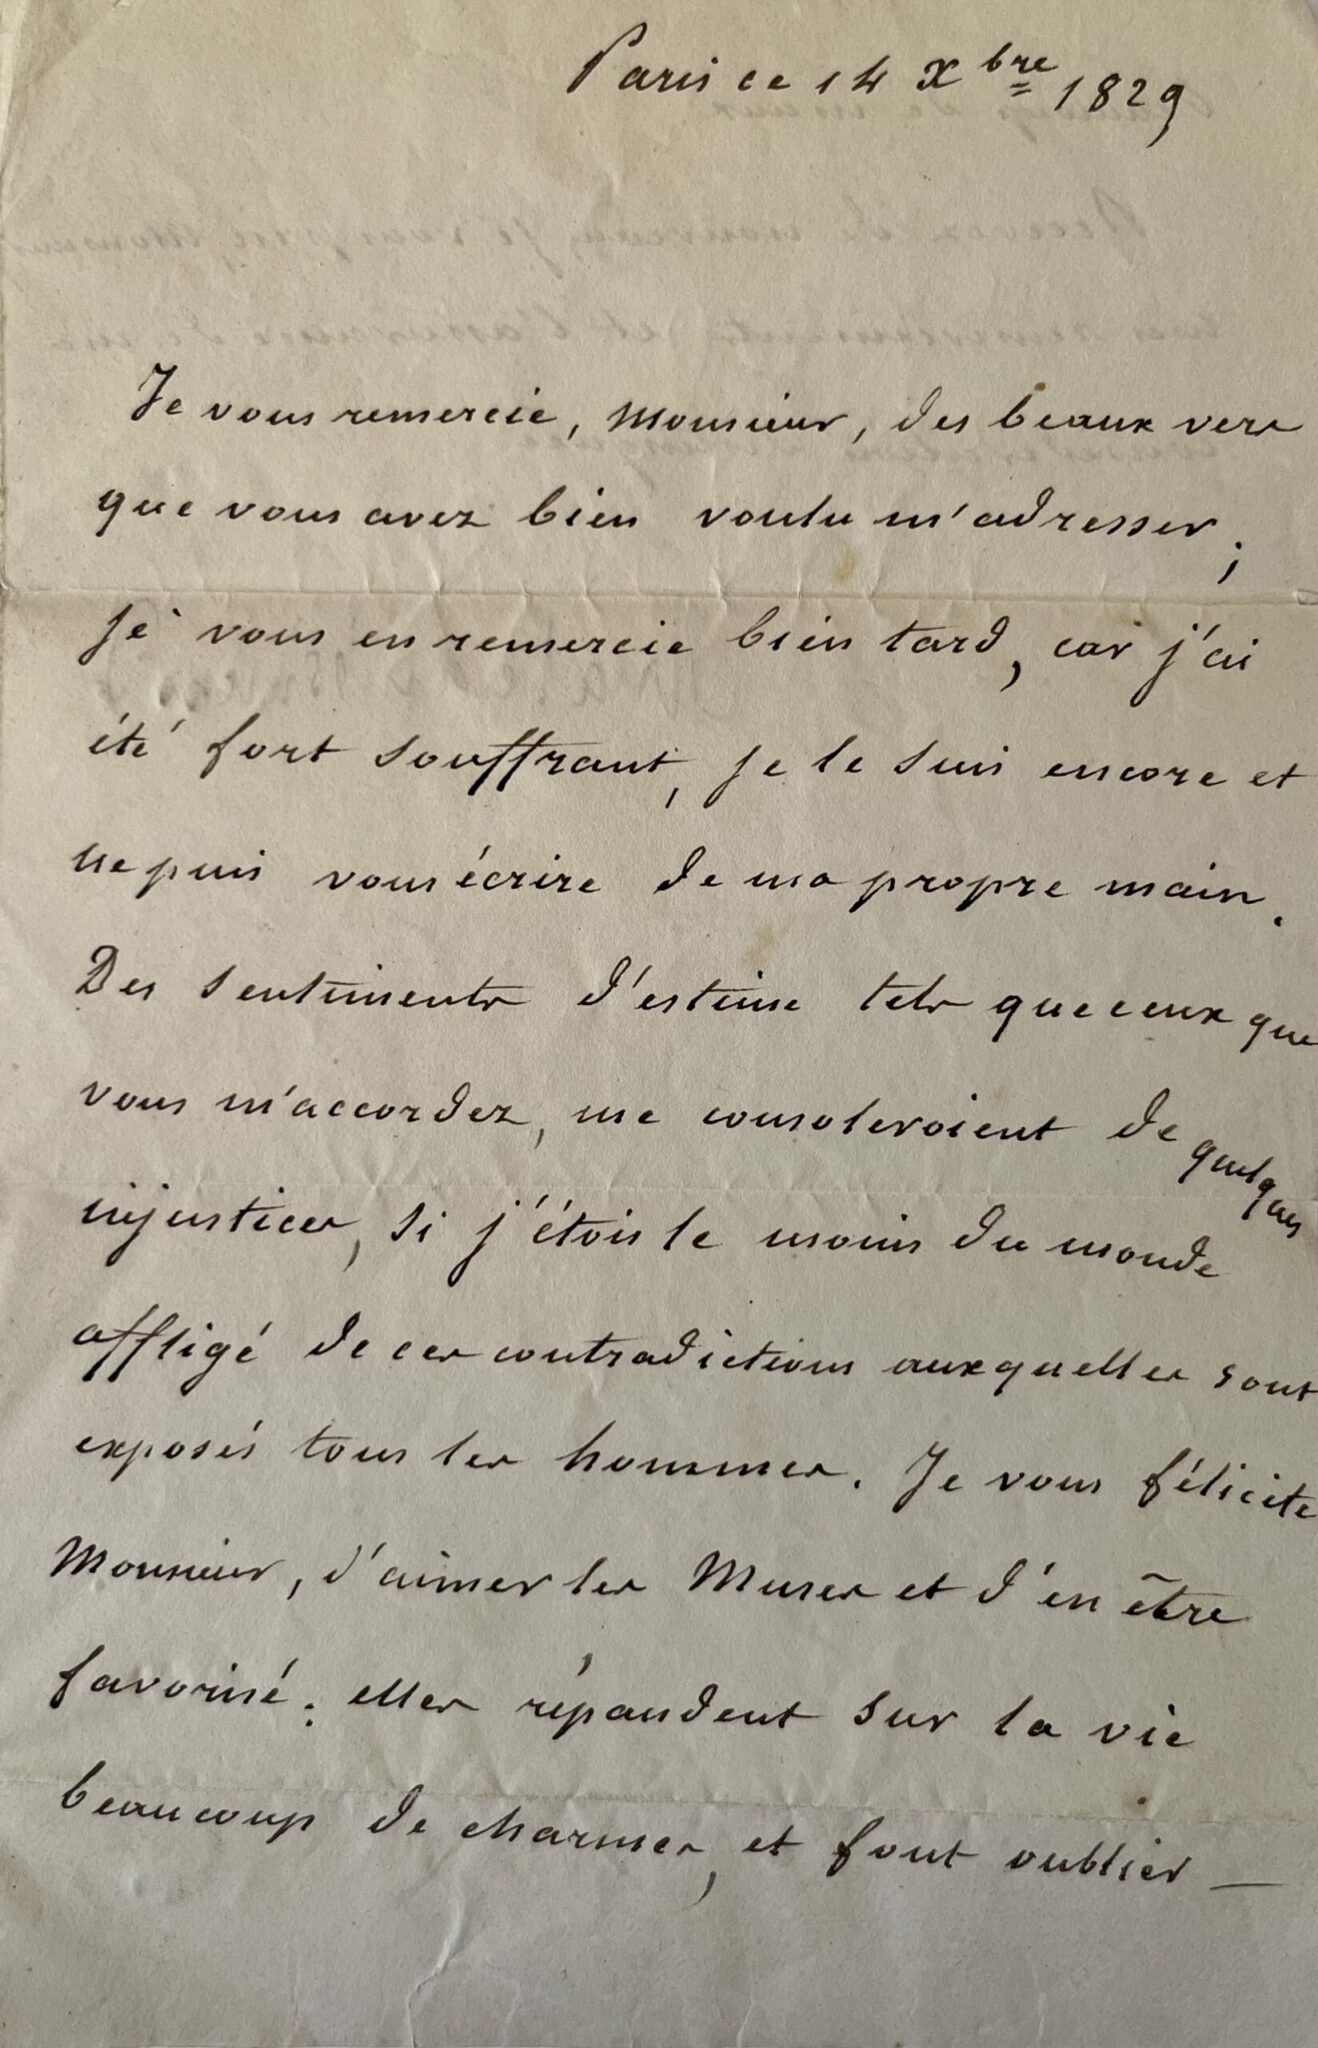 Paris ce 14 Xbre 1829
Je vous remercie, Monsieur, des beaux vers
que vous avez bien voulu m'adresser;
je vous en remercie bien tard, car j'ai
été fort souffrant, je le suis encore et
ne puis vous écrire de ma propre main.
Des sentiments d'estime tels que ceux que
vous m'accordez, me consoleroient de quelques
injustices, si j'étois le moins du monde
affligé de ces contradictions auxquelles sont
exposés tous les hommes. Je vous félicite
Monsieur, d'aimer les Muses et d'en être
favorisé: elles répandent sur la vie
beaucoup de charmes, et font oublier —